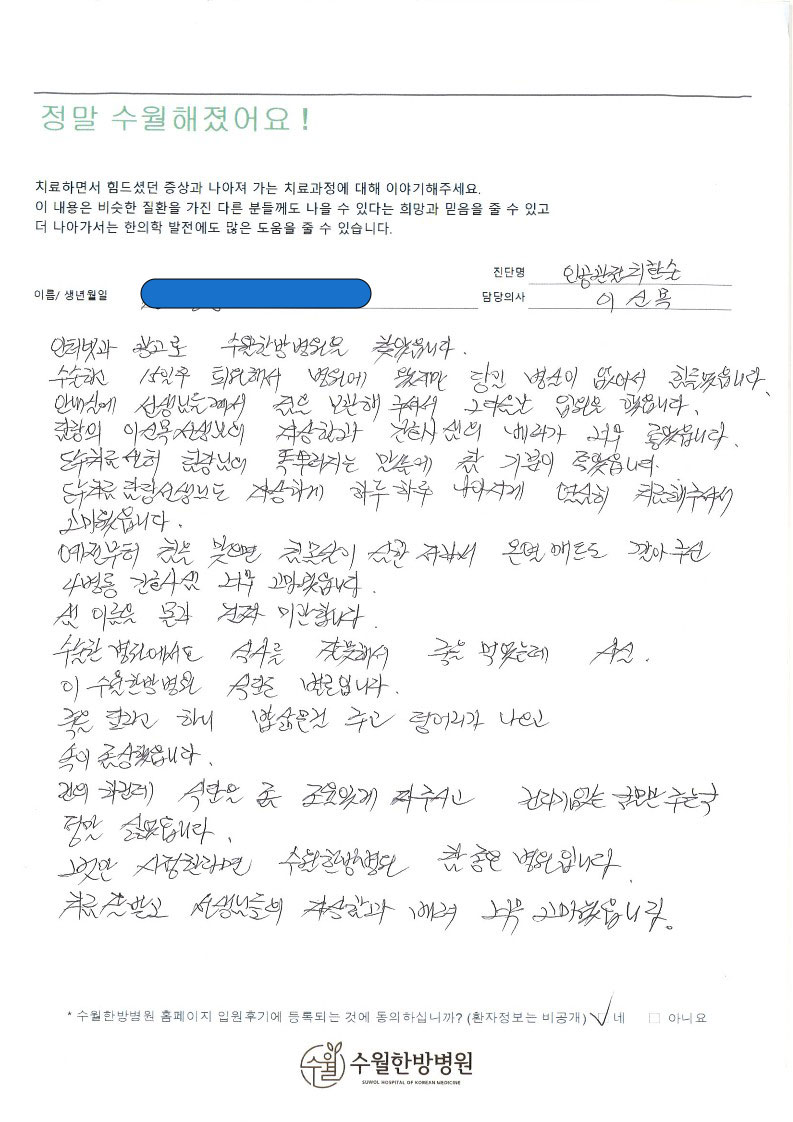 정말 수월해졌어요!
치료하면서 힘드셨던 증상과 나아져 가는 치료과정에 대해 이야기해주세요.
이 내용은 비슷한 질환을 가진 다른 분들께도 나을 수 있다는 희망과 믿음을 줄 수 있고
더 나아가서는 한의학 발전에도 많은 도움을 줄 수 있습니다.
진단명 인공관절치환술
이름/ 생년월일
담당의사 이신목
인터넷과 광고로 수월한방병원을 찾았읍니다.
수술하고 15일후 퇴원해서 병원에 왔지만 당일 병실이 없어서 힘들었읍니다.
안내실에 선생님들께서 짐을 보관해 주셔서 그다음날 입원을 했읍니다.
원장의 이신목선생님의 자상함과 간호사샘의 배려가 너무 좋았읍니다.
도수치료실의 팀장님의 똑뿌러지는 말씀에 참 기분이 좋았읍니다.
도수치료 팀장선생님도 자상하게 하루하루 나아지게 열심히 치료해주셔서
고마웠읍니다.
예전부터 침을 맞으면 침몸살이 심한 저라서 온열매트도 깔아주신
4병동 간호사샘 너무 고마웠읍니다.
샘 이름을 몰라 미안합니다.
수술한 병원에서도 식사를 잘못해서 죽을 먹었는데 사실.
이 수월한방병원 식단은 별로입니다.
죽을 달라고 하니 밥삶은걸 주고 덩어리가 나오고
속이 좀상했읍니다.
식단을 좀 조웃있게 짜주시고 건더기없는 국물만 주는국
정말 실망입니다.
그것만 시정한다면 수월한방병원 참 좋은 병원입니다.
치료 잘받고 선생님들의 자상함과 배려 너무 고마웠읍니다.
* 수월한방병원 홈페이지 입원후기에 등록되는 것에 동의하십니까? (환자정보는 비공개) ☑ 네 □ 아니요
수월 수월한방병원
SUWOL HOSPITAL OF KOREAN MEDICINE